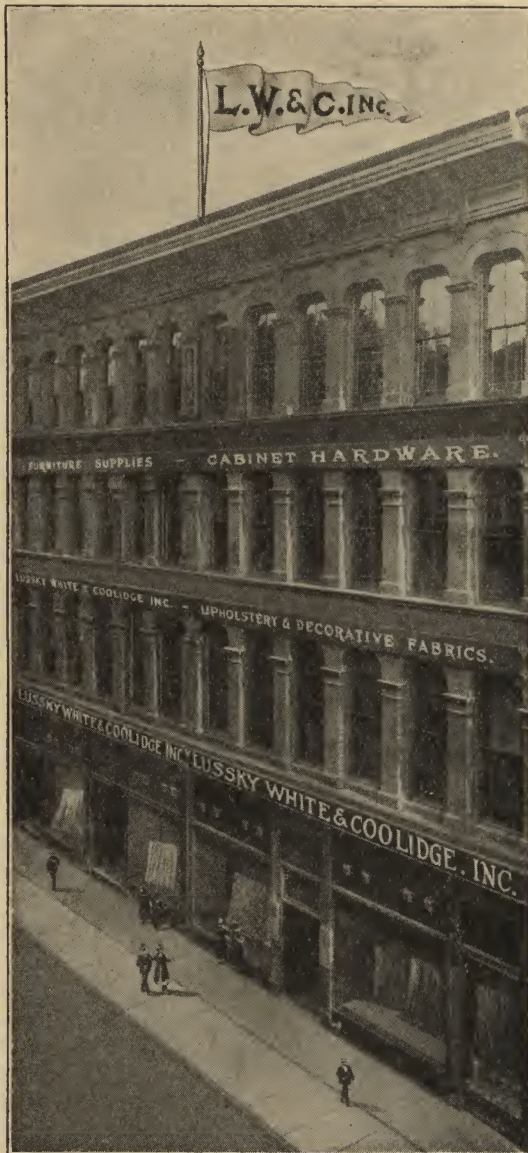 L.W.& C.INC.
FURNITURE SUPPLIES - CABINET HARDWARE.
LUSSKY WHITE & COOLIDGE INC. - UPHOLSTERY & DECORATIVE FABRICS.
LUSSKY WHITE & COOLIDGE INC. LUSSKY WHITE & COOLIDGE. INC.